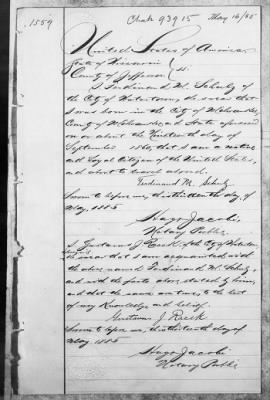 1559 Chak 93915 May 16/85
United States of America
State of Wisconsin
County of Jefferson } ss.
I Ferdinand M. Schulz of
the City of Watertown, do swear that
I was born in the City of Milwaukee,
County of Milwaukee, and State aforesaid
on or about the Nineteenth day of
September 1860, that I am a native
and Loyal Citizen of the United States,
and about to travel abroad.
Ferdinand M. Schulz
Sworn to before me, this thirteenth day, of
May, 1885
Hugo Jacobi,
Notary Public.
I, Gustavus J. Rieck, of the City of Watertown,
do swear that I am acquainted with
the above named Ferdinand M. Schulz,
and with the facts above stated by him,
and that the same are true, to the best
of my Knowledge and belief.
Gustavus J. Rieck
Sworn to before me, this thirteenth day of
May, 1885
Hugo Jacobi
Notary Public